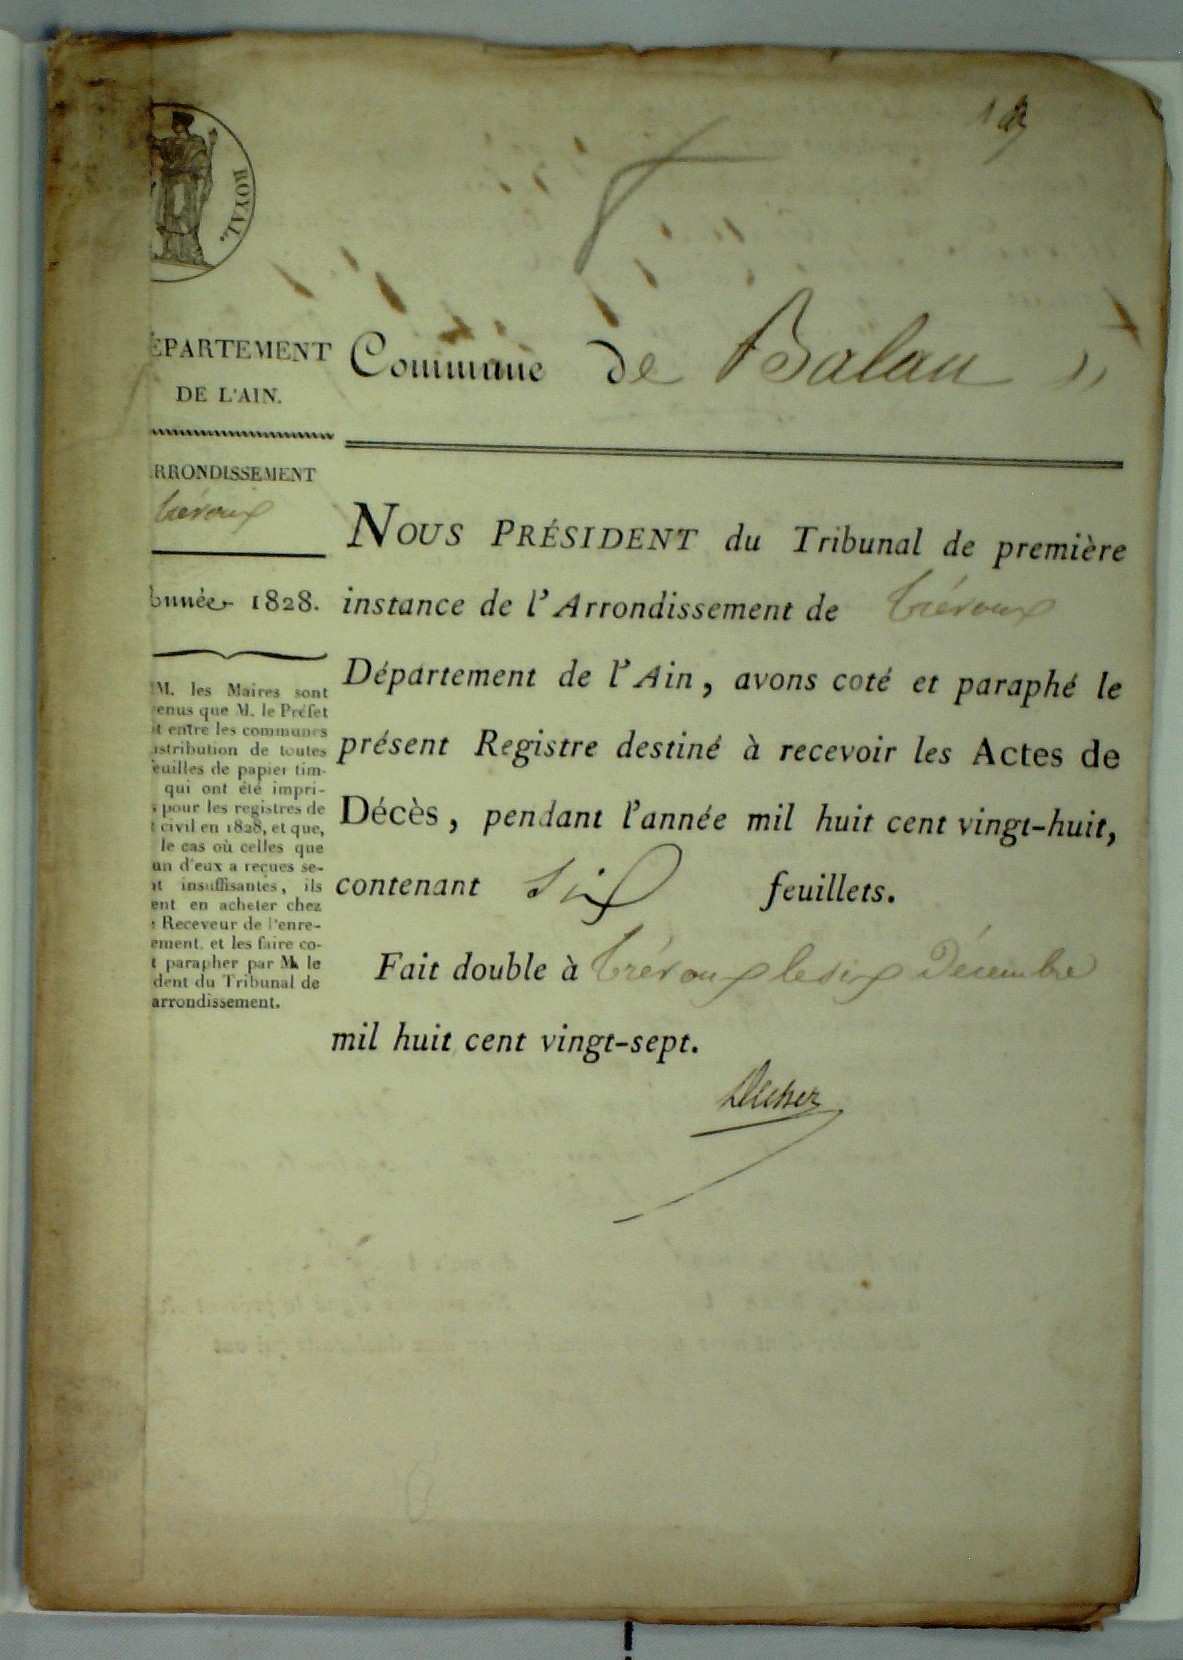 ROYAL.
ÉPARTEMENT
DE L'AIN.
RRONDISSEMENT
trévoux
nnée 1828.
M. les Maires sont
enus que M. le Préfet
it entre les communes
istribution de toutes
feuilles de papier tim-
qui ont été impri-
s pour les registres de
t civil en 1828, et que,
le cas où celles que
un d'eux a reçues se-
nt insuffisantes, ils
ent en acheter chez
e Receveur de l'enre-
ement, et les faire co-
t parapher par M. le
dent du Tribunal de
arrondissement.
Commune de Balan
NOUS PRÉSIDENT du Tribunal de première
instance de l'Arrondissement de trévoux
Département de l'Ain, avons coté et paraphé le
présent Registre destiné à recevoir les Actes de
Décès, pendant l'année mil huit cent vingt-huit,
contenant six feuillets.
Fait double à trévoux le six Décembre
mil huit cent vingt-sept.